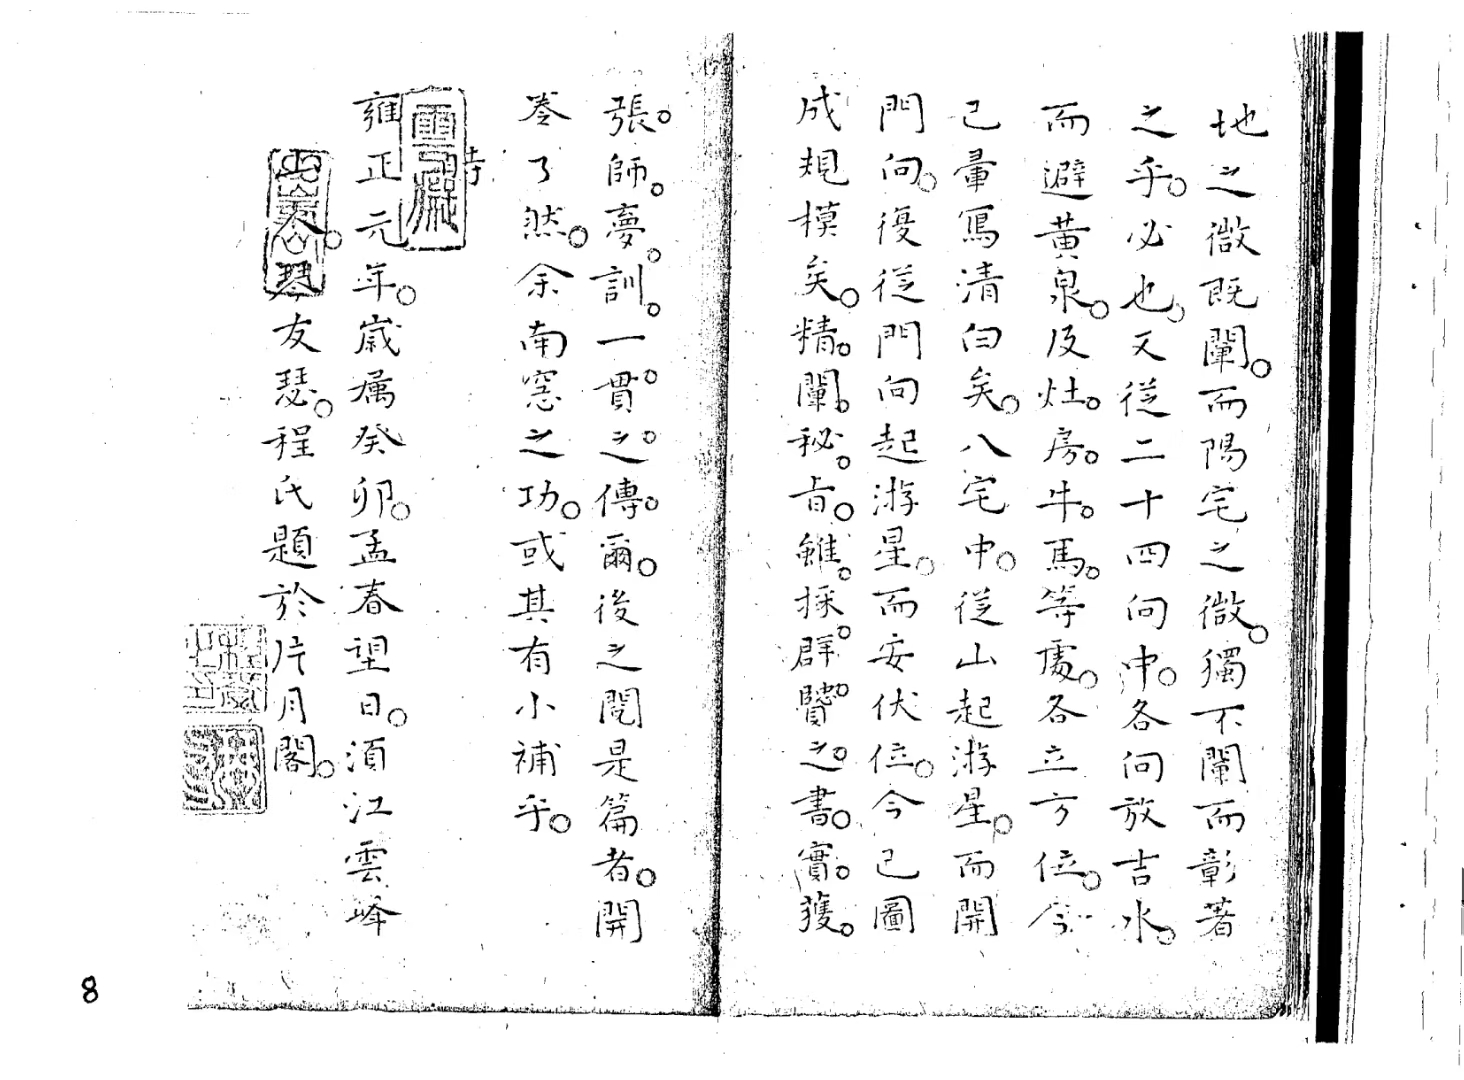 地之微既闡。而陽宅之微。獨不闡而彰著
之乎。必也。又從二十四向中。各向放吉水。
而避黃泉。及灶。房。牛。馬。等處。各立方位。今
已彙寫清白矣。八宅中。從山起游星。而開
門向。復從門向起游星。而安伏位。今已圖
成規模矣。精。闡。秘。旨。雖。採。群。賢。之。書。實。獲。
張。師。夢。訓。一貫。之。傳。爾。後之閱是篇者。開
卷了然。余南窓之功。或其有小補乎。
時
雍正元年。歲属癸卯。孟春望日。須江雲峰
。琴友瑟。程氏題於片月閣。
8